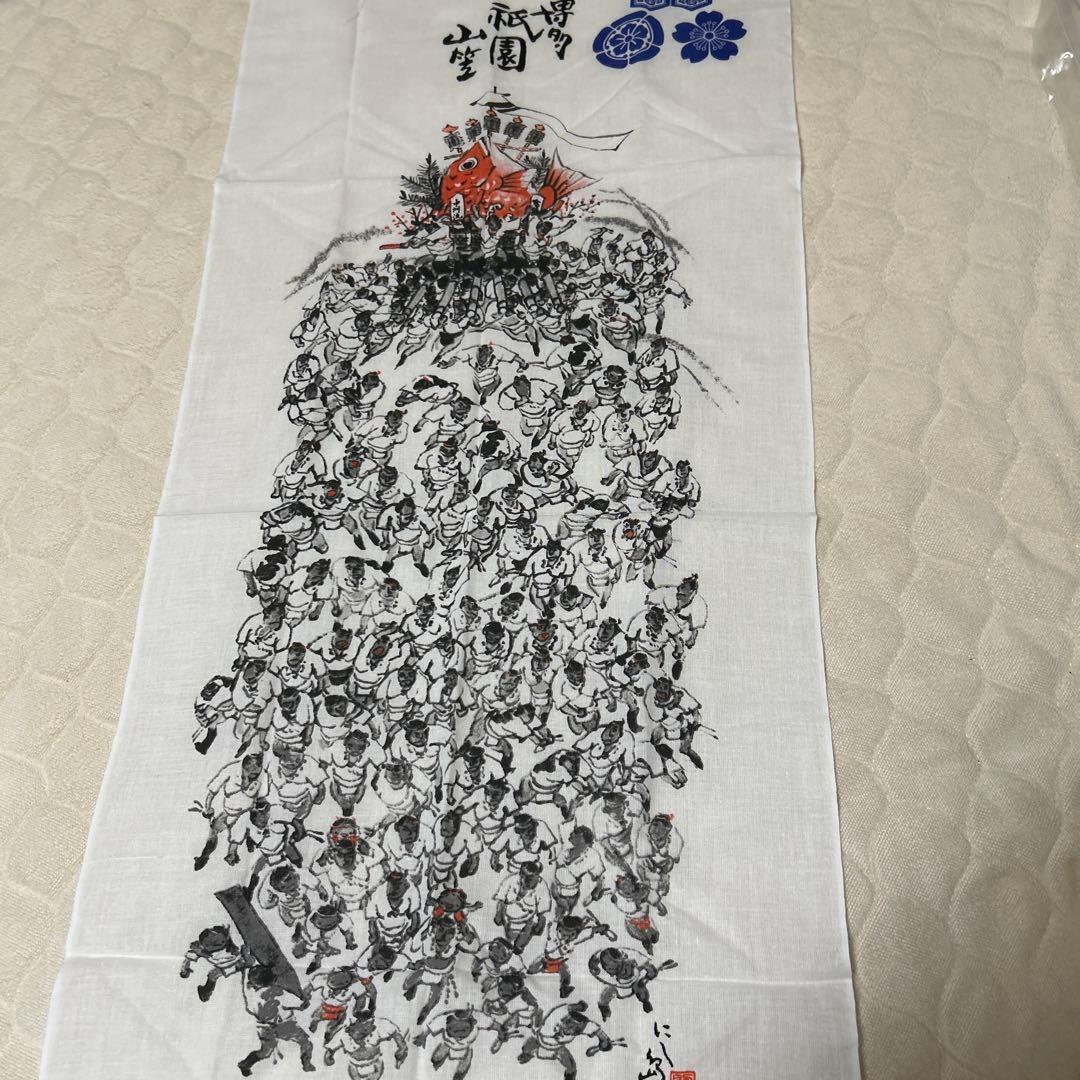 博多
祇園
山笠
にし島